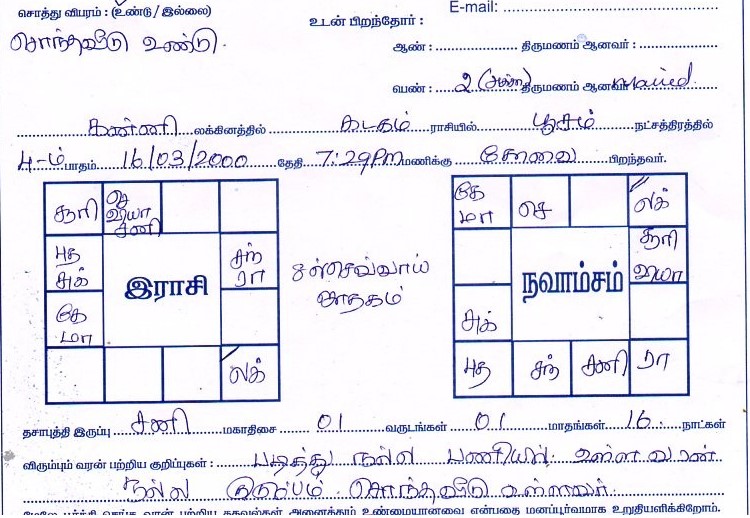 சொத்து விபரம் : (உண்டு / இல்லை)
E-mail:
உடன் பிறந்தோர் :
சொந்தவீடு உண்டு.
ஆண் : திருமணம் ஆனவர் :
பெண் : 2 (அக்கா) திருமணம் ஆனவர்
கன்னி லக்கினத்தில் கடகம் ராசியில் பூசம் நட்சத்திரத்தில்
4-ம் பாதம் 16/03/2000 தேதி 7:29Pm மணிக்கு கோவை பிறந்தவர்.
சூரி செ வியா சனி
புத சுக்
சந் ரா
கே மா
லக்
இராசி
8ல் செவ்வாய் ஜாதகம்
கே மா செ லக்
சூரி வியா
சுக்
புத சந் சனி ரா
நவாம்சம்
தசாபுத்தி இருப்பு சனி மகாதிசை 01 வருடங்கள் 01 மாதங்கள் 16 நாட்கள்
விரும்பும் வரன் பற்றிய குறிப்புகள் : படித்து நல்ல பணியில் உள்ள வரன்
நல்ல குடும்பம் சொந்தவீடு உள்ளவர்
மேலே பூர்த்தி செய்த வரன் பற்றிய தகவல்கள் அனைத்தும் உண்மையானவை என்பதை மனப்பூர்வமாக உறுதியளிக்கிறோம்.